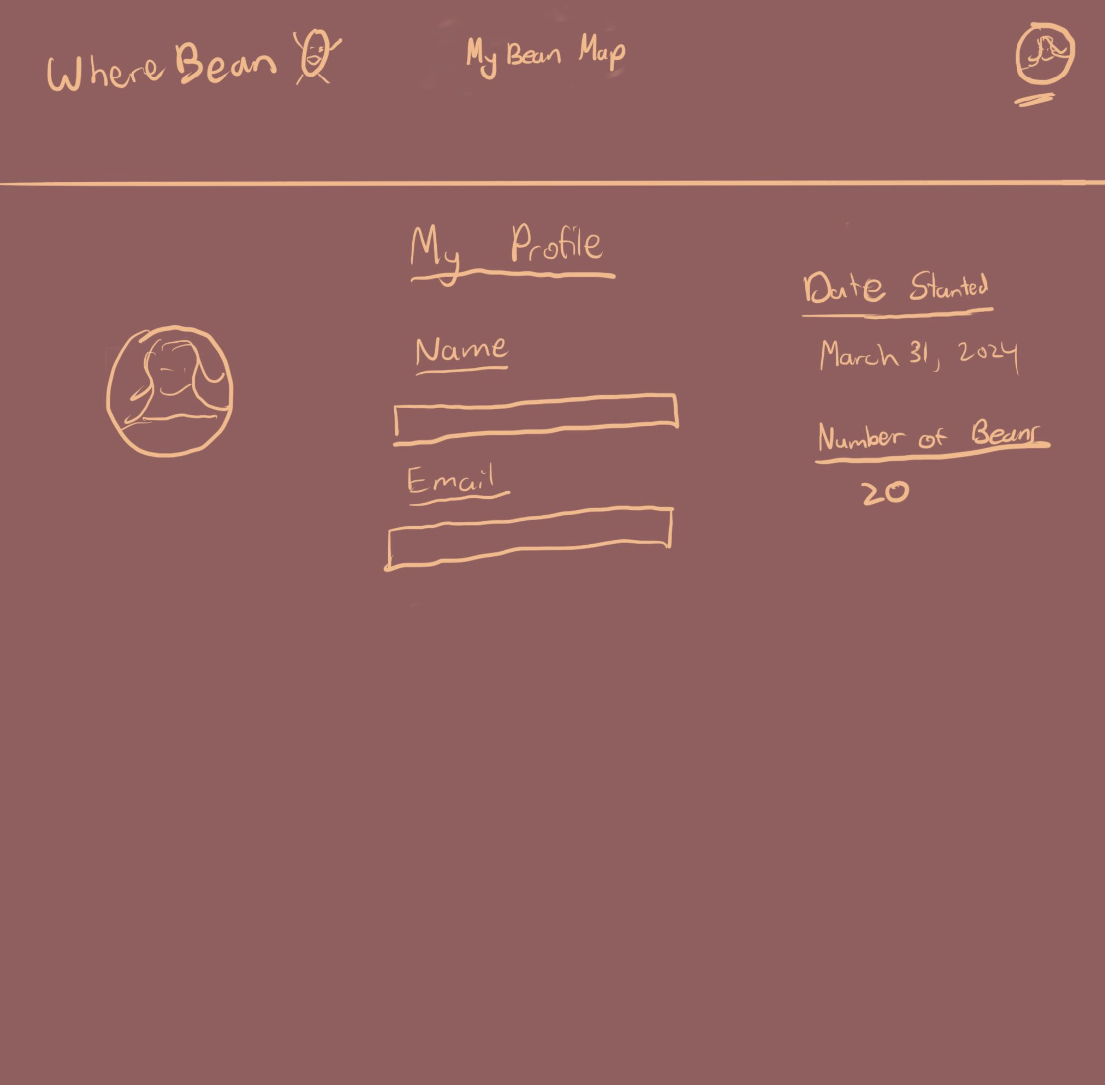 Where Bean
My Bean Map
My Profile
Name
Email
Date Started
March 31, 2024
Number of Beans
20